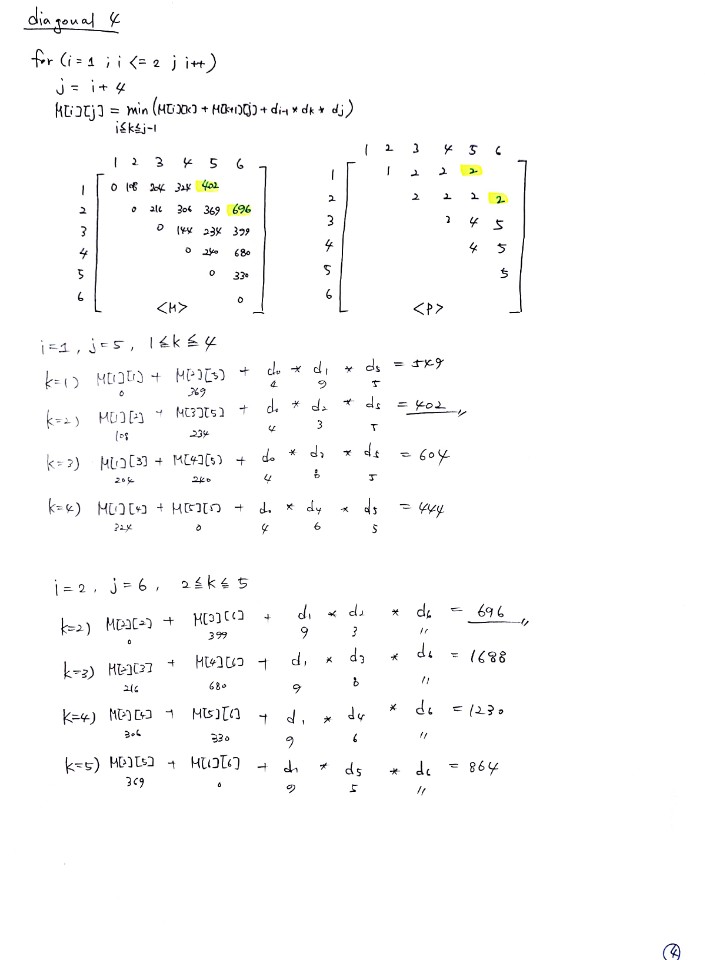 diagonal 4
for (i = 1 ; i <= 2 ; i++)
j = i + 4
M[i][j] = min (M[i][k] + M[k+1][j] + di-1 * dk * dj)
i≤k≤j-1
1 2 3 4 5 6
1 0 108 204 324 402
2 0 216 306 369 696
3 0 144 234 399
4 0 240 680
5 0 330
6 0
<M>
1 2 3 4 5 6
1 1 2 2 2
2 2 2 2 2
3 3 4 5
4 4 5
5 5
6
<P>
i=1, j=5, 1≤k≤4
k=1) M[1][1] + M[2][5] + d0 * d1 * d5 = 549
0 369 4 9 5
k=2) M[1][2] + M[3][5] + d0 * d2 * d5 = 402
108 234 4 3 5
k=3) M[1][3] + M[4][5] + d0 * d3 * d5 = 604
204 240 4 8 5
k=4) M[1][4] + M[5][5] + d0 * d4 * d5 = 444
324 0 4 6 5
i=2, j=6, 2≤k≤5
k=2) M[2][2] + M[3][6] + d1 * d2 * d6 = 696
0 399 9 3 11
k=3) M[2][3] + M[4][6] + d1 * d3 * d6 = 1688
216 680 9 8 11
k=4) M[2][4] + M[5][6] + d1 * d4 * d6 = 1230
306 330 9 6 11
k=5) M[2][5] + M[6][6] + d1 * d5 * d6 = 864
369 0 9 5 11
4